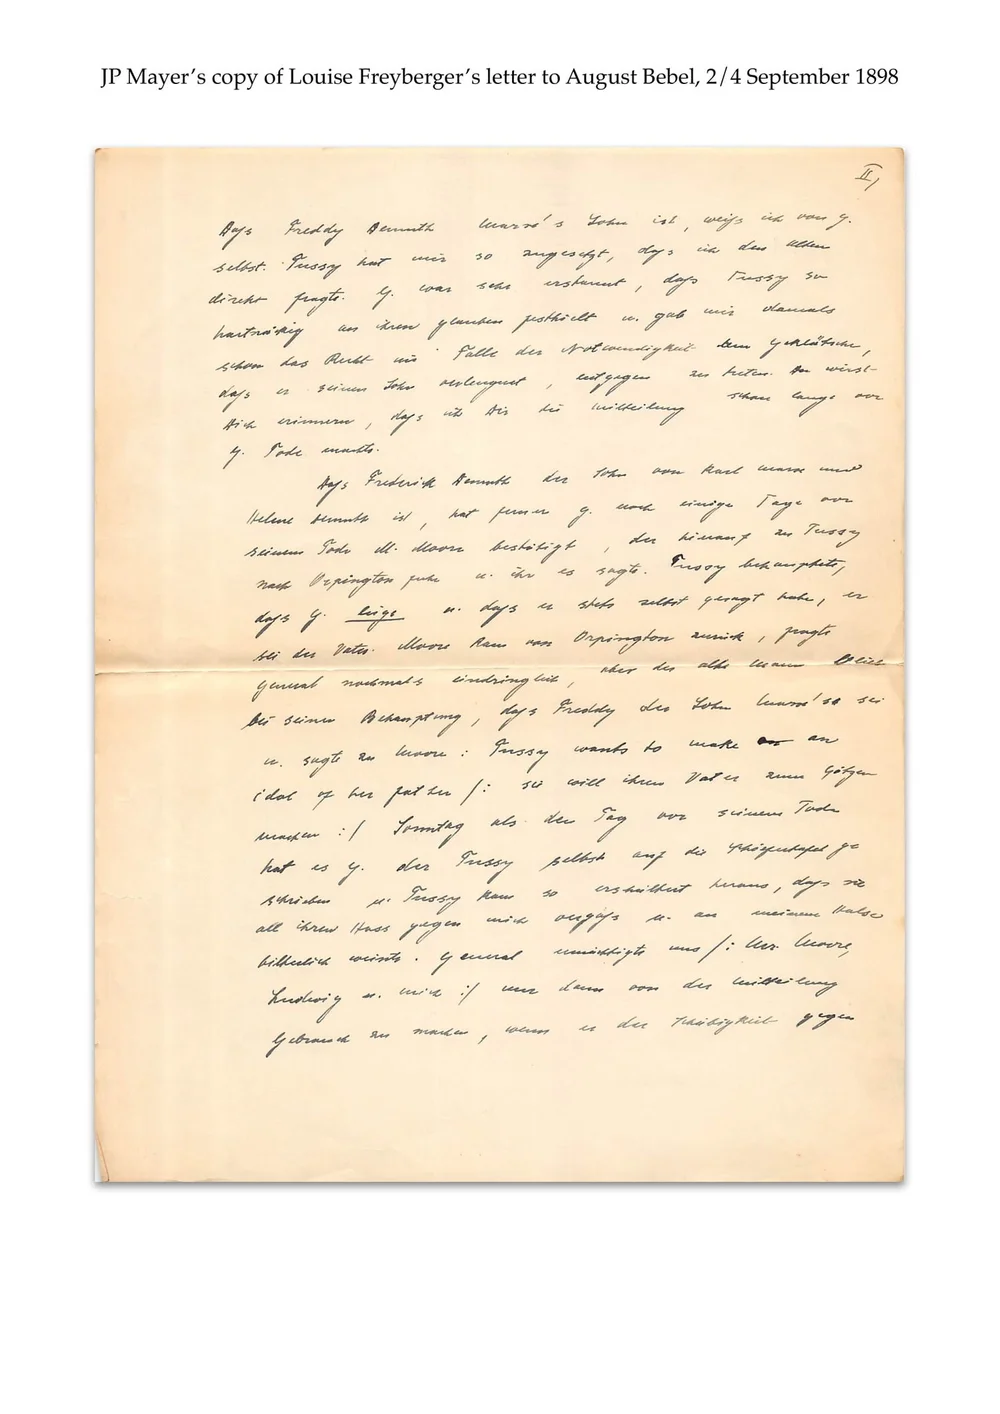 JP Mayer's copy of Louise Freyberger's letter to August Bebel, 2/4 September 1898
II,
Dass Freddy Demuth Marx's Sohn ist, weiß ich von G.
selbst. Tussy hat mir so zugesetzt, dass ich den Alten
direkt fragte. G. war sehr erstaunt, dass Tussy so
hartnäckig an ihrem Glauben festhielt u. gab mir damals
schon das Recht im Falle der Notwendigkeit dem Geklätsche,
dass er seinen Sohn verleugnet, entgegen zu treten. Du wirst
Dich erinnern, dass ich Dir die Mitteilung schon lange vor
G. Tode machte.
Dass Frederick Demuth der Sohn von Karl Marx und
Helene Demuth ist, hat ferner G. noch einige Tage vor
seinem Tode M. Moore bestätigt, der hierauf zu Tussy
nach Orpington fuhr u. ihr es sagte. Tussy behauptete,
dass G. lüge u. dass er stets selbst gesagt habe, er
sei der Vater. Moore kam von Orpington zurück, fragte
General nochmals eindringlich, aber der alte Mann blieb
bei seiner Behauptung, dass Freddy der Sohn Marx's sei
u. sagte zu Moore: Tussy wants to make an
idol of her father /: sie will ihren Vater zum Götzen
machen :/ Sonntag als den Tag vor seinem Tode
hat es G. der Tussy selbst auf die Schiefertafel ge
schrieben u. Tussy kam so erschüttert heraus, dass sie
all ihren Hass gegen mich vergaß u. an meinem Halse
bitterlich weinte. General ermächtigte uns /: Mr. Moore,
Ludwig u. mich :/ nur dann von der Mitteilung
Gebrauch zu machen, wenn er der Schäbigkeit gegen